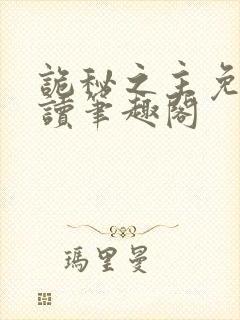 詭秘之主免
讀筆趣閣
瑪里曼